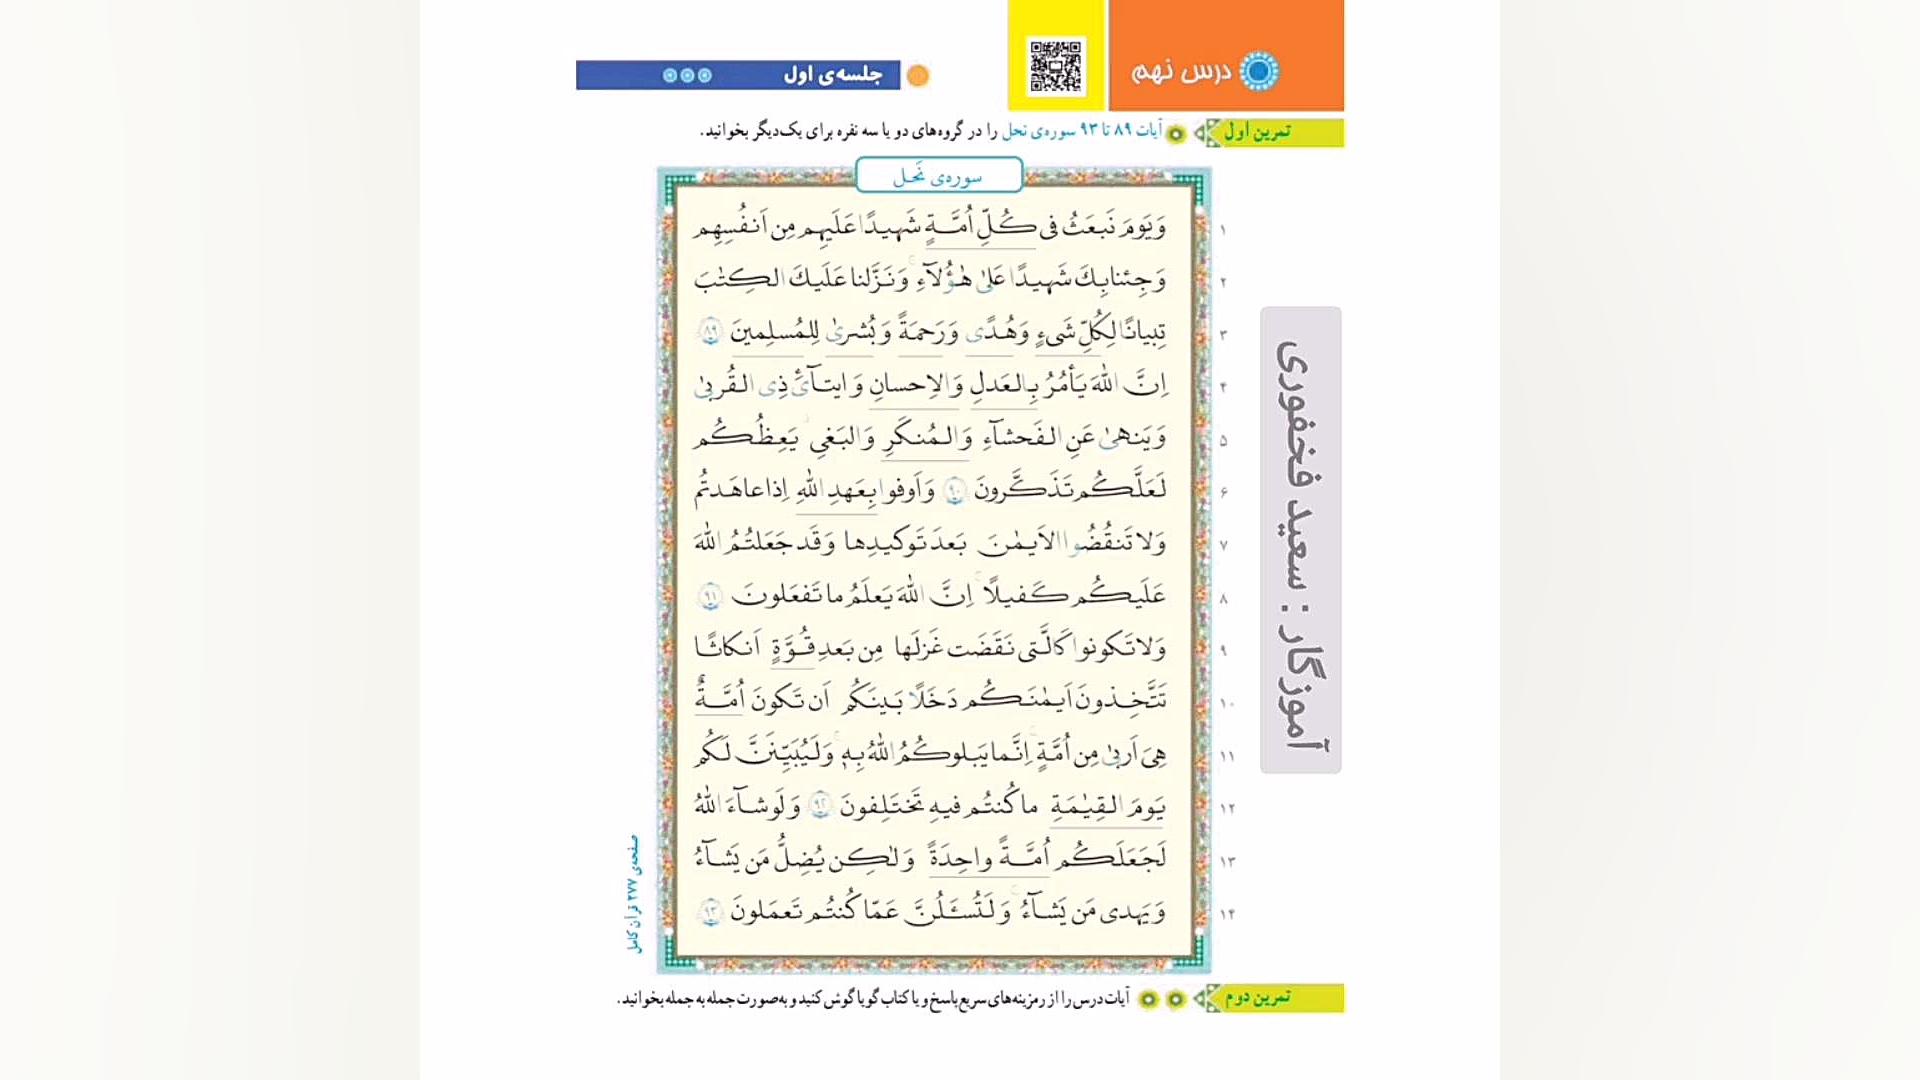 درس نهم
جلسه‌ی اول
تمرین اول
آیات ۸۹ تا ۹۳ سوره‌ی نحل را در گروه‌های دو یا سه نفره برای یک‌دیگر بخوانید.
سوره‌ی نَحل
۱ وَ یَومَ نَبعَثُ فی کُلِّ اُمَّةٍ شَهیدًا عَلَیهِم مِن اَنفُسِهِم
۲ وَ جِئنا بِکَ شَهیدًا عَلیٰ هٰؤُلآءِ ۚ وَ نَزَّلنا عَلَیکَ الکِتٰبَ
۳ تِبیانًا لِکُلِّ شَیءٍ وَ هُدًی وَ رَحمَةً وَ بُشریٰ لِلمُسلِمینَ ۸۹
۴ اِنَّ اللّٰهَ یَأمُرُ بِالعَدلِ وَ الاِحسانِ وَ ایتآیِٔ ذِی القُربیٰ
۵ وَ یَنهیٰ عَنِ الفَحشآءِ وَ المُنکَرِ وَ البَغیِ ۚ یَعِظُکُم
۶ لَعَلَّکُم تَذَکَّرونَ ۹۰ وَ اَوفوا بِعَهدِ اللّٰهِ اِذا عاهَدتُم
۷ وَ لا تَنقُضُوا الاَیمٰنَ بَعدَ تَوکیدِها وَ قَد جَعَلتُمُ اللّٰهَ
۸ عَلَیکُم کَفیلًا ۚ اِنَّ اللّٰهَ یَعلَمُ ما تَفعَلونَ ۹۱
۹ وَ لا تَکونوا کَالَّتی نَقَضَت غَزلَها مِن بَعدِ قُوَّةٍ اَنکاثًا
۱۰ تَتَّخِذونَ اَیمٰنَکُم دَخَلًا بَینَکُم اَن تَکونَ اُمَّةٌ
۱۱ هِیَ اَربیٰ مِن اُمَّةٍ ۚ اِنَّما یَبلوکُمُ اللّٰهُ بِهٖ ۚ وَ لَیُبَیِّنَنَّ لَکُم
۱۲ یَومَ القِیٰمَةِ ما کُنتُم فیهِ تَختَلِفونَ ۹۲ وَ لَو شآءَ اللّٰهُ
۱۳ لَجَعَلَکُم اُمَّةً واحِدَةً وَ لٰکِن یُضِلُّ مَن یَشآءُ
۱۴ وَ یَهدی مَن یَشآءُ ۚ وَ لَتُسئَلُنَّ عَمّا کُنتُم تَعمَلونَ ۹۳
آموزگار : سعید فخفوری
صفحه‌ی ۲۷۷ قرآن کامل
تمرین دوم
آیات درس را از رمزینه‌های سریع پاسخ و یا کتاب گویا گوش کنید و به‌صورت جمله به جمله بخوانید.